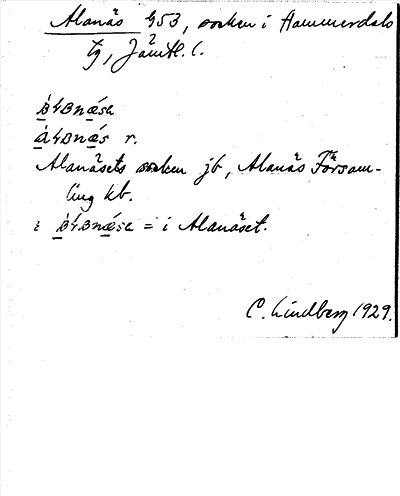 Alanäs G53, socken i Hammerdals
tg, Jämtl. l.
r.
Alanäsets socken jb, Alanäs Försam-
ling kb.
i = i Alanäset.
C. Lindberg 1929.